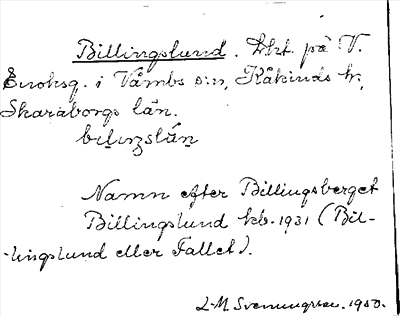 Billingslund. Lht. på V.
Enoksg. i Våmbs s:n, Kåkinds hd,
Skaraborgs län.
Namn efter Billingsberget
Billingslund hb. 1931 (Bil-
lingslund eller Fallet).
L-M Svenungsson. 1950.